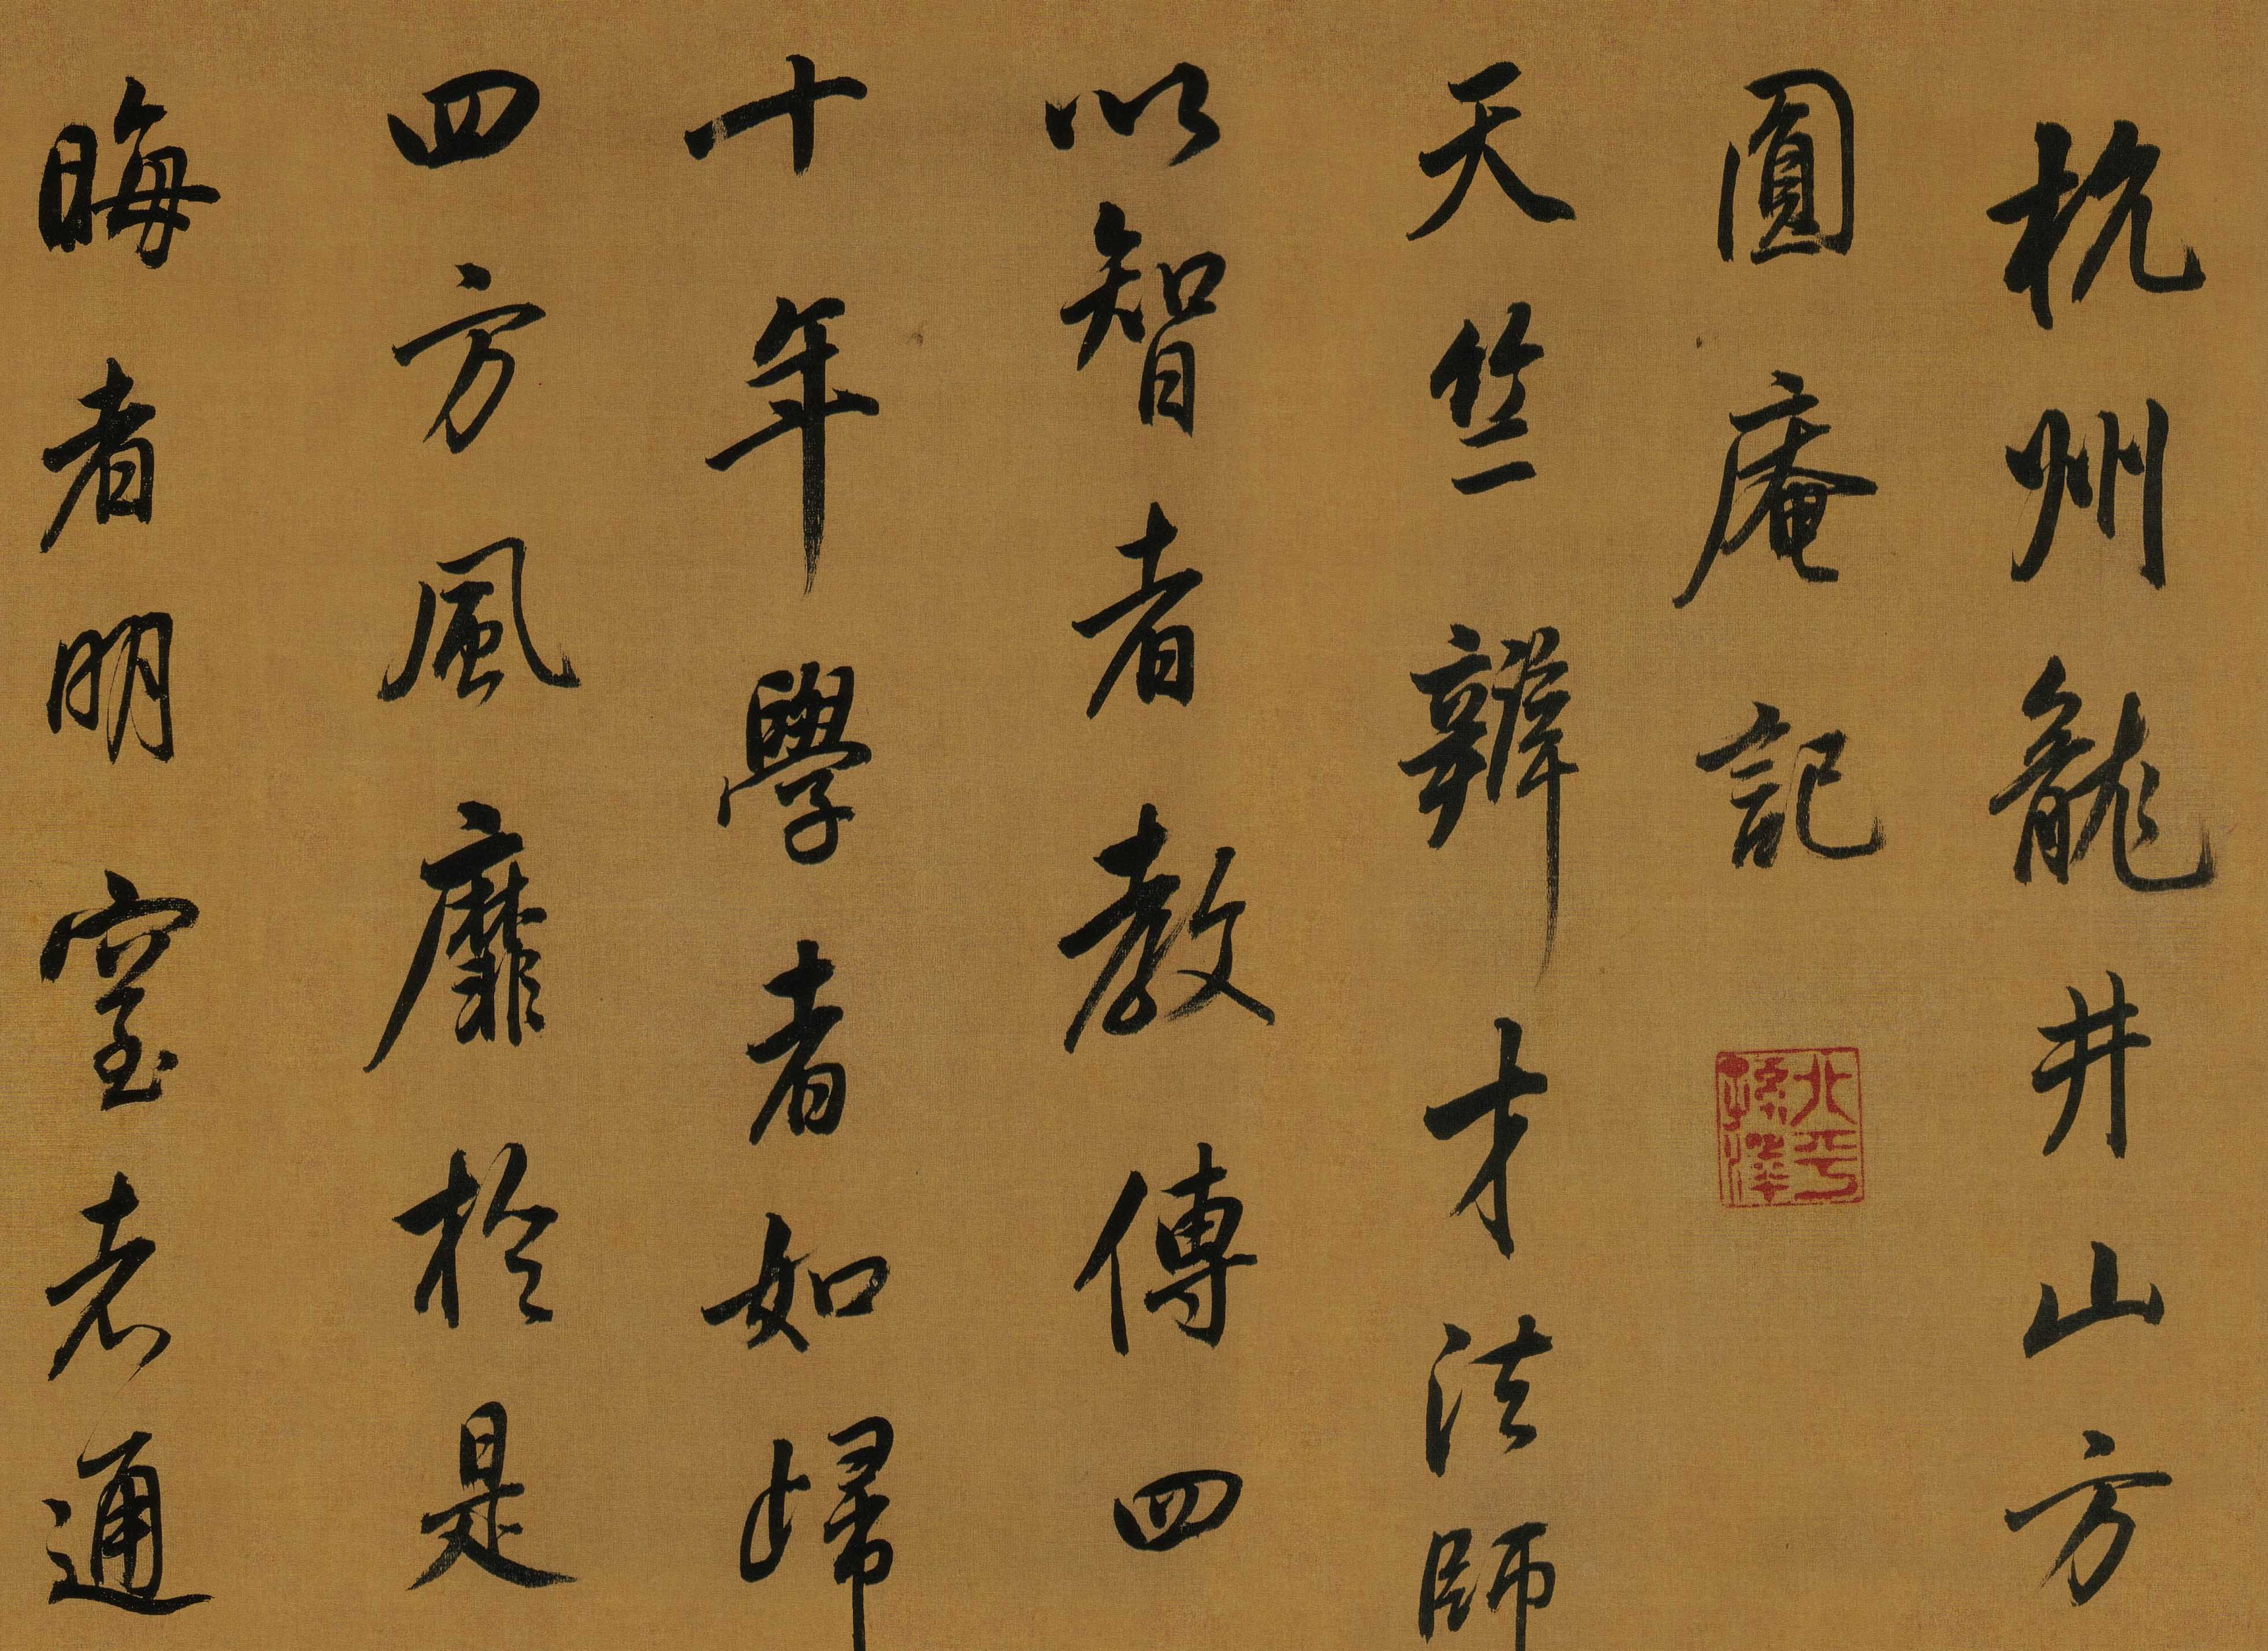 杭州龍井山方
圓庵記
北平
孫澤
天竺辯才法師
以智者教傳四
十年學者如歸
四方風靡於是
晦者明窒者通